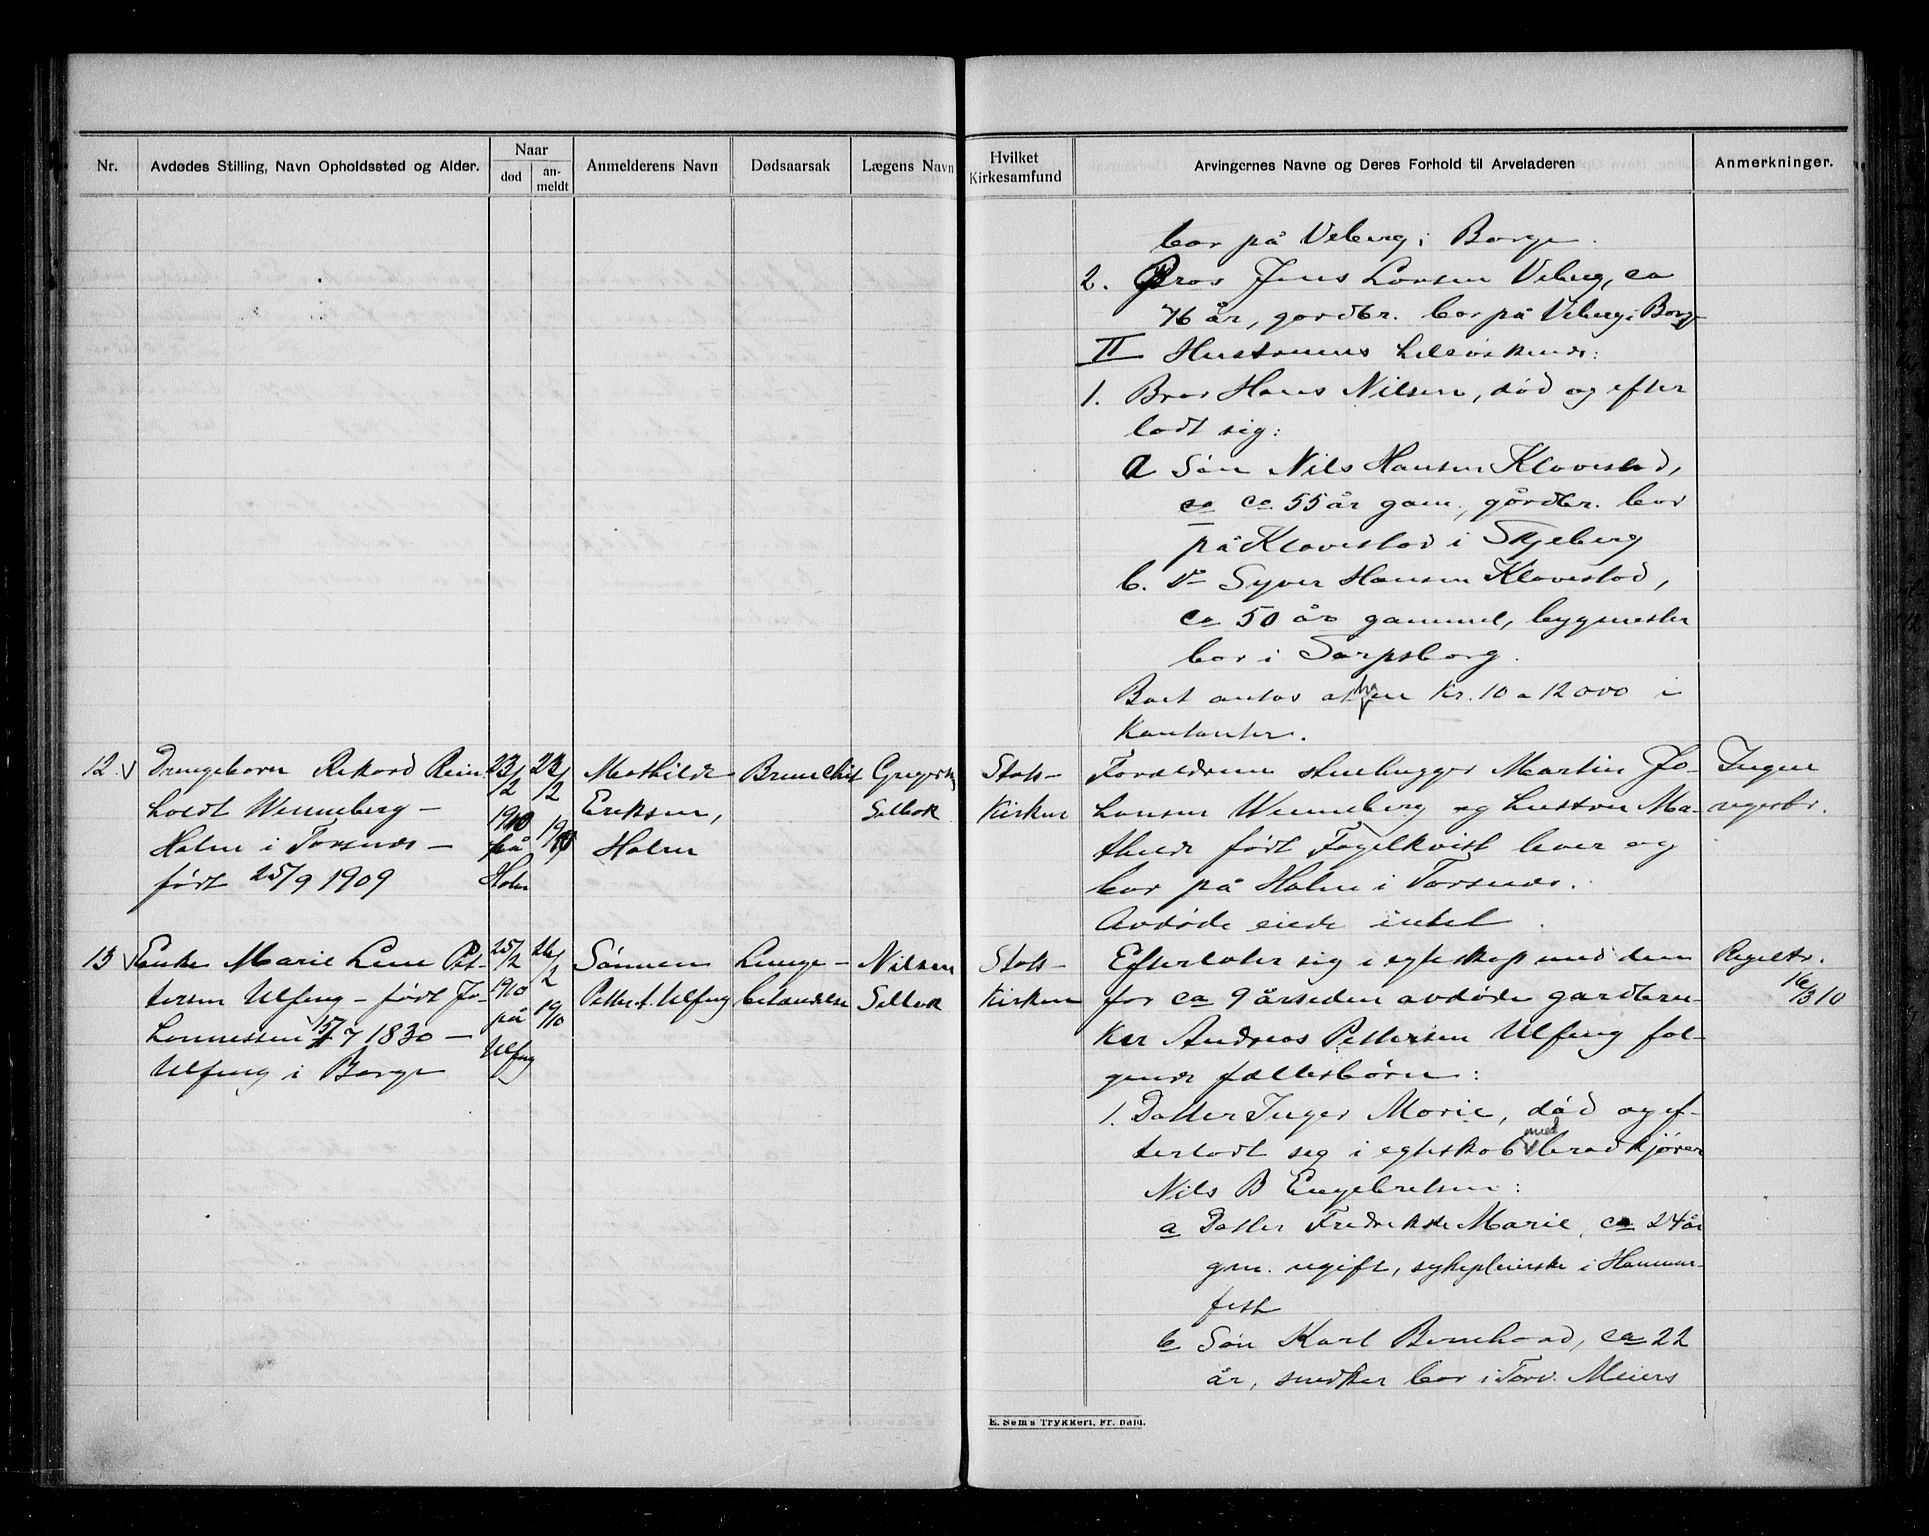 Nr.
Avdødes Stilling, Navn Opholdssted og Alder.
Naar
død
an-
meldt
Anmelderens Navn
Dødsaarsak
Lægens Navn
Hvilket
Kirkesamfund
Arvingernes Navne og Deres Forhold til Arveladeren
Anmerkninger.
bor på Veberg i Borge.
2. Bror Jens Larsen Veberg, ca
76 år, gardbr. bor på Veberg i Borge
II Hustruens helsøskende:
1. Bror Hans Nilsen, død og efter
ladt sig:
a Søn Nils Hansen Klavestad,
ca ca. 55 år gam., gårdbr. bor
på Klavestad i Skjeberg
b. Do Syver Hansen Klavestad,
ca 50 år gammel, bygmester
bor i Sarpsborg.
Boet antas at ha en Kr. 10 a 12000 i
Kontanter.
12.
Drengebarn Rikard Rein
holdt Wenneberg –
Holm i Torsnes –
født 25/9 1909
23/2
1910
på
Holm
23/2
1910
Mathilde
Eriksen,
Holm
Bronchit
Gregersen
Sellebak
Stats-
Kirken
Forældrene stenhugger Martin Jo-
hansen Wenneberg og hustru Ma-
thilde født Fagelkvist lever og
bor på Holm i Torsnes.
Avdøde eiede intet.
Ingen
registr.
13
Enke Marie Lene Pet-
tersen Ulfeng – født Jo-
hannessen 15/7 1830 –
Ulfeng i Borge
25/2
1910
på
Ulfeng
26/2
19/10
Sønnen
Petter A. Ulfeng
Lunge-
betændelse
Nilsen
Sellebak
Stats-
Kirken
Efterlater sig i egteskap med den
for ca 9 år siden avdøde gardbru-
ker Andreas Pettersen Ulfeng føl-
gende fællesbørn:
1. Datter Inger Marie, død og ef-
terladt sig i egteskab med brødkjører
Nils B Engebretsen:
a Datter Fredrikke Marie, ca 24 år
gm. ugift, sykepleierske i Hammer-
fest
b Søn Karl Bernhard, ca 22
år, snedker bor i Torv. Meiers
Registr.
16/3 10
E. Sem's Trykkeri, Fr. hald.